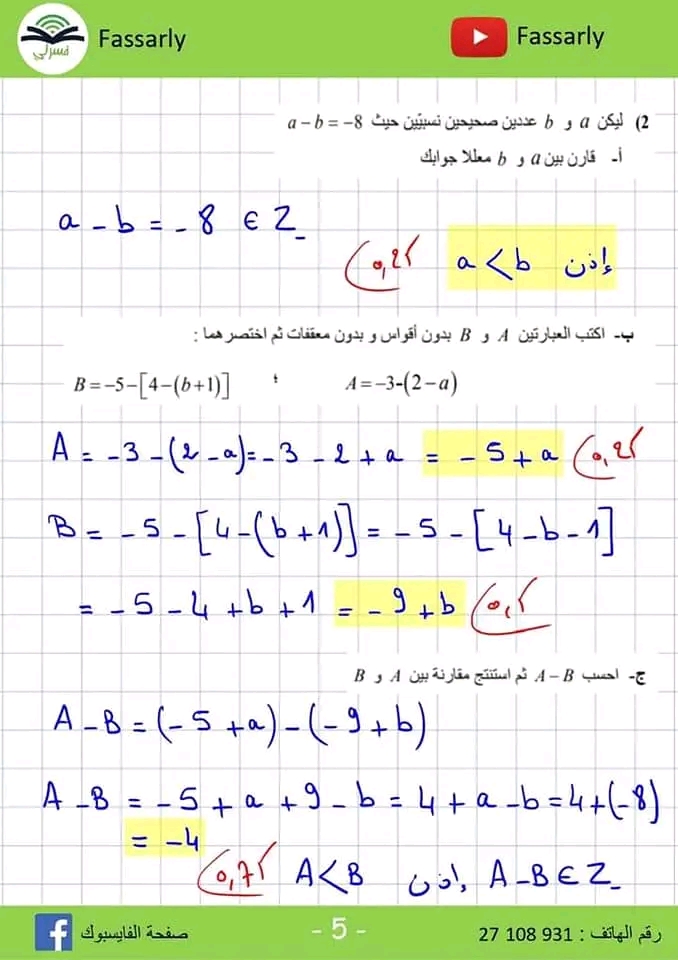 فسرلي Fassarly Fassarly
2) ليكن a و b عددين صحيحين نسبيّين حيث a – b = –8
أ- قارن بين a و b معللا جوابك
a - b = - 8 ∈ Z_
إذن a < b 0,25
ب- اكتب العبارتين A و B بدون أقواس و بدون معقفات ثم اختصرهما :
A = –3-(2 – a) ؛ B = –5 – [4 – (b + 1)]
A = -3 - (2 - a) = -3 - 2 + a = -5 + a 0,25
B = -5 - [4 - (b + 1)] = -5 - [4 - b - 1]
= -5 - 4 + b + 1 = -9 + b 0,5
ج- احسب A – B ثم استنتج مقارنة بين A و B
A - B = (-5 + a) - (-9 + b)
A - B = -5 + a + 9 - b = 4 + a - b = 4 + (-8)
= -4
A - B ∈ Z_ إذن A < B 0,75
صفحة الفايسبوك - 5 - رقم الهاتف : 27 108 931